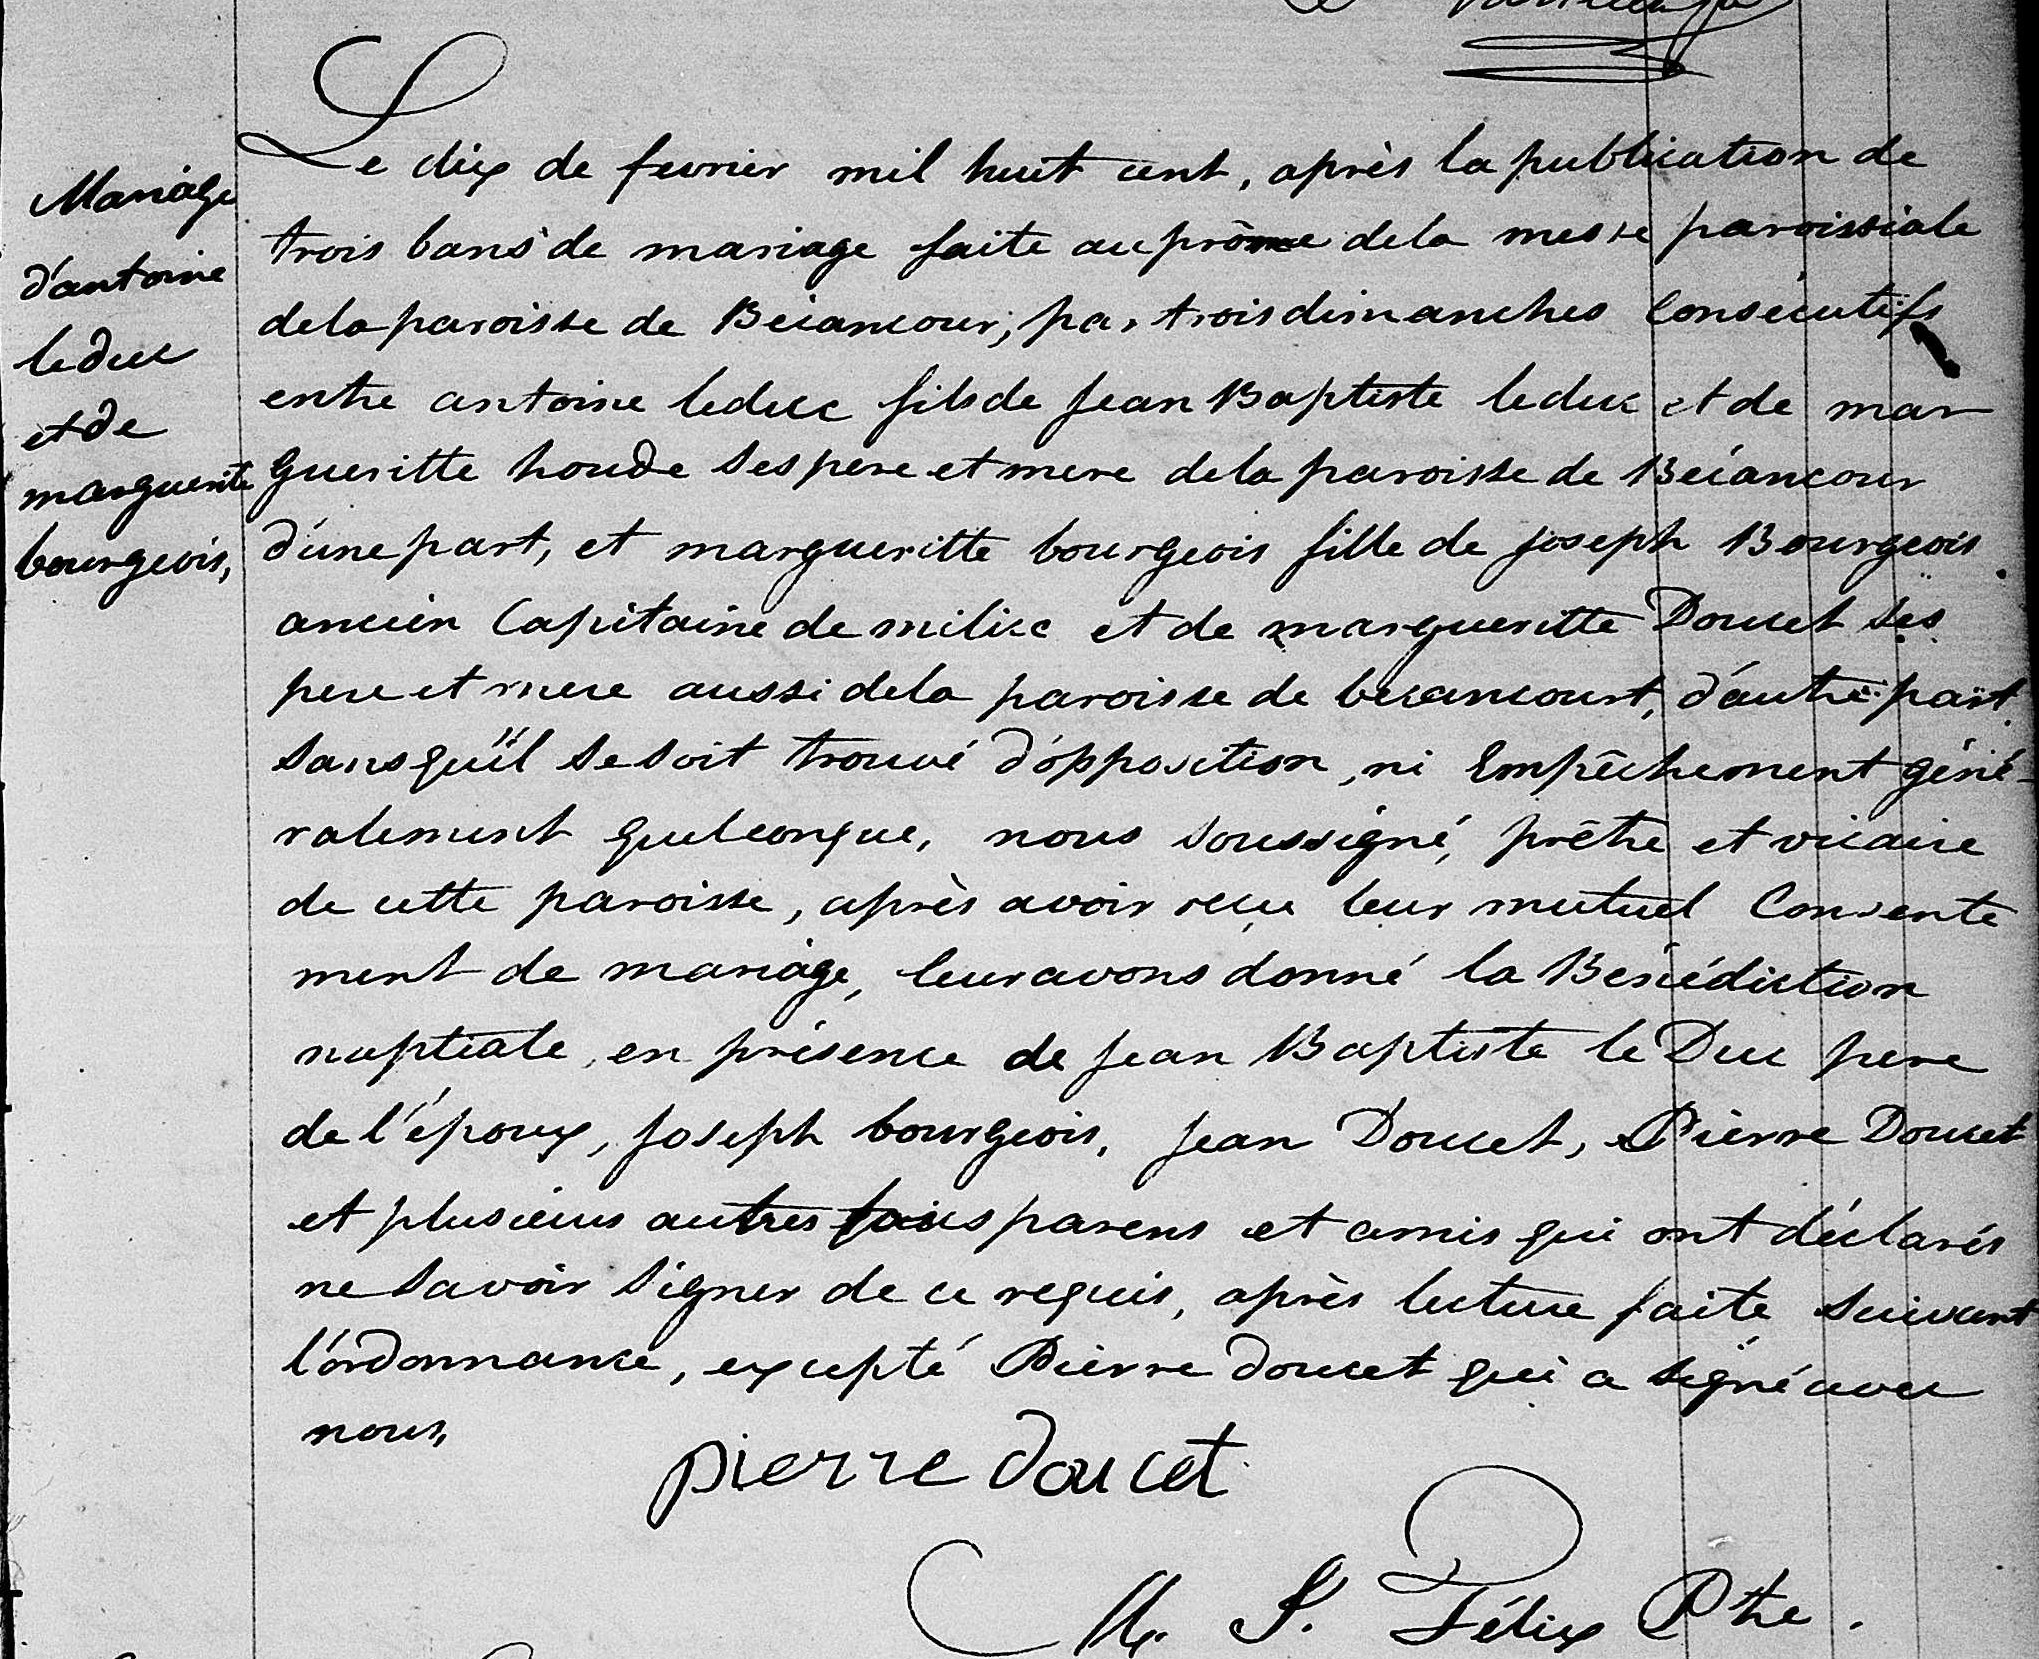 Le dix de fevrier mil huit cent, après la publication de
trois bans de mariage faite au prône de la messe paroissiale
de la paroisse de Beiancour, par trois dimanches Consécutifs
entre antoine leduc fils de Jean Baptiste leduc et de mar
gueritte houde ses pere et mere de la paroisse de Beiancour
d'une part, et margueritte bourgeois fille de joseph Bourgeois
ancien Capitaine de milice et de margueritte Doucet ses
pere et mere aussi de la paroisse de becancourt, d'autre part
sans qu'il se soit trouvé d'opposition, ni Empêchement géné-
ralement quelconque, nous soussigné, prêtre et vicaire
de cette paroisse, après avoir reçu leur mutuel Consente
ment de mariage, leur avons donné la Bénédiction
nuptiale, en présence de Jean Baptiste le Duc pere
de l'époux, Joseph bourgeois, Jean Doucet, Pierre Doucet
et plusieurs autres parens et amis qui ont déclarés
ne savoir signer de ce requis, après lecture faite suivant
l'ordonnance, excepté Pierre doucet qui a signé avec
nous,
pierre doucet
M. S. Félix Ptre.
Mariage
d'antoine
leduc
et de
marguerite
bourgeois,